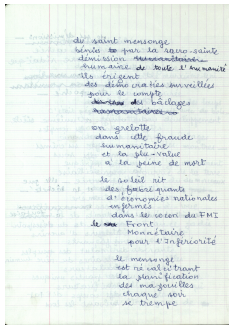 du saint mensonge
bénis par la sacro-sainte
démission
humaine de toute l'humanité
ils érigent
des démocraties surveillées
pour le compte
des bâclages
on grelotte
dans cette fraude
humanitaire
et la plu-value
a la peine de mort
le soleil rit
des fabriquants
d'économies nationales
infirmes
dans le cocon du FMI
le Front
Monnétaire
pour l'Infériorité
le mensonge
est né
la planification
des magouilles
chaque soir
se trempe